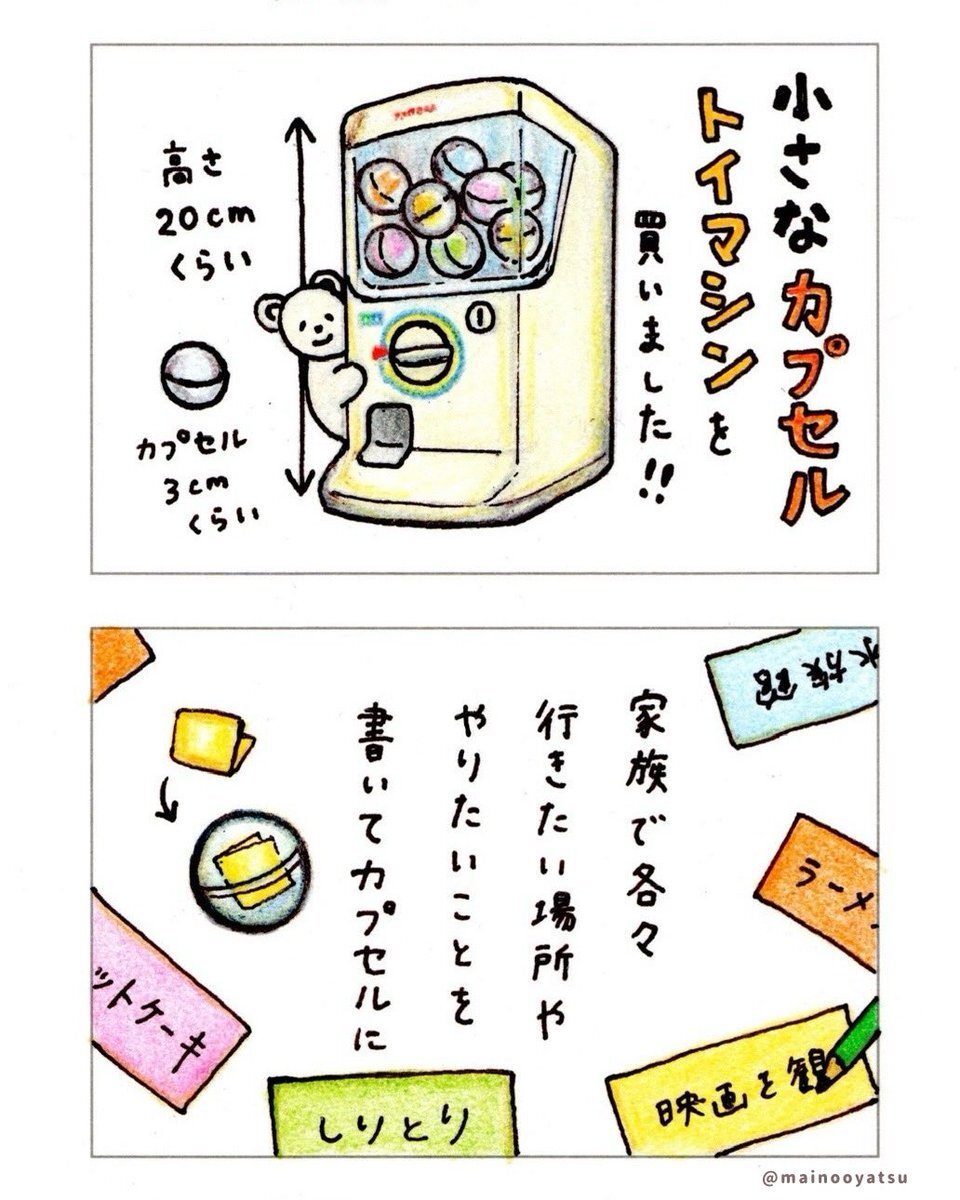 小さなカプセル
トイマシンを
買いました!!
高さ
20cm
くらい
カプセル
3cm
くらい
家族で各々
行きたい場所や
やりたいことを
書いてカプセルに
水族館
ラーメ
ットケーキ
しりとり
映画を観
@mainooyatsu